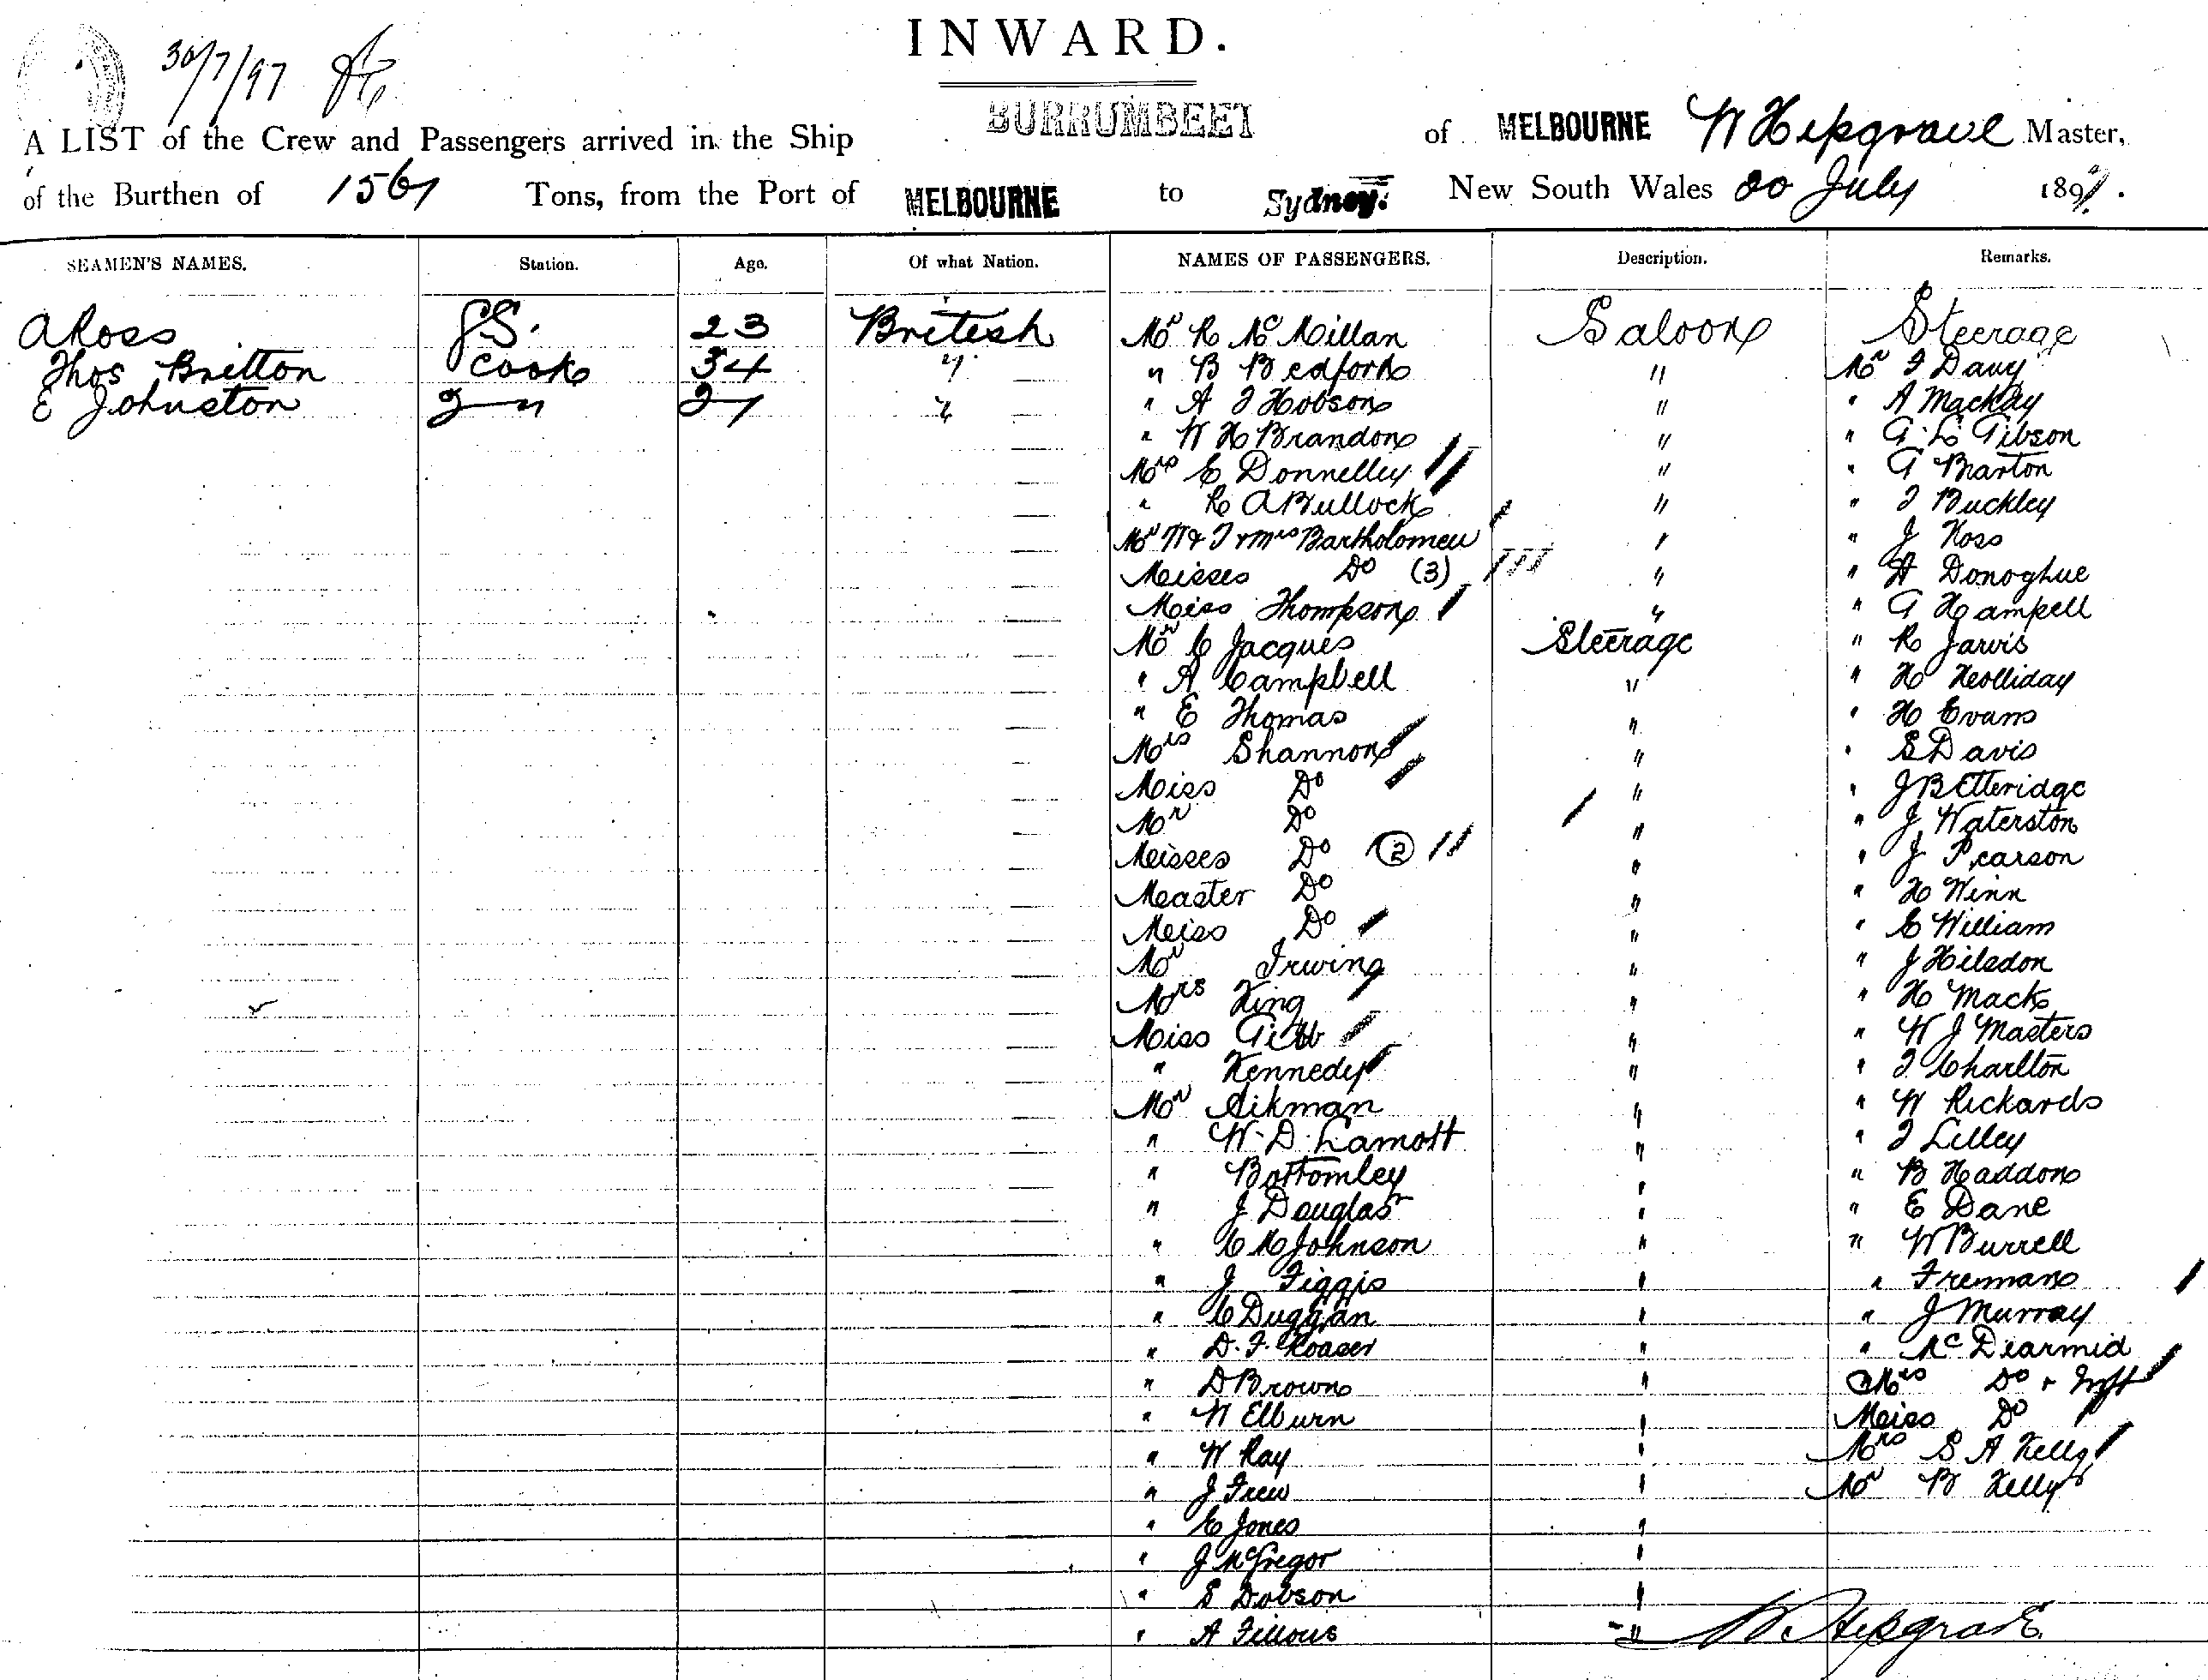 30/7/97
INWARD.
A LIST of the Crew and Passengers arrived in the Ship BURRUMBEET of MELBOURNE W Hepgrave Master,
of the Burthen of Tons, from the Port of MELBOURNE to Sydney. New South Wales July 1897.
SEAMEN'S NAMES. Station. Age. Of what Nation. NAMES OF PASSENGERS. Description. Remarks.
A Ross 23 British Mr R McMillan Saloon Steerage
Thos Britton Cook 34 " " B Bedford " Mr J Davy
E Johnston " " A J Hobson " " A Mackay
" W H Brandon " " G L Gibson
Mrs E Donnelley " " G Barton
" R A Bullock " " J Buckley
Mr W & J & Mrs Bartholomew " " J Ross
Misses Do (3) " " Donoghue
Miss Thompson " " G Hampell
Mr C Jacques Steerage " R Jarvis
" A Campbell " " H Holliday
" E Thomas " " H Evans
Mrs Shannon " " S Davis
Miss Do " " J B Etteridge
Mr Do " " J Waterston
Misses Do (2) " " J Pearson
Master Do " " H Winn
Miss Do " " C William
Mr Irwing " " J Hilsdon
Mrs King " " H Mack
Miss Gibb " " W J Masters
" Kennedy " " J Charlton
Mr Aikman " " W Rickards
" W. D. Lamott " " J Lilley
" Bottomley " " B Haddon
" J Douglas " " E Dane
" C M Johnson " " W Burrell
" J Figgis " " Freeman
" C Duggan " " J Murray
" D. F. Roaser " " McDiarmid
" D Brown " Mrs Do + Inft
" W Elburn " Miss Do
" W Ray " Mrs S A Kelly
" J Frew " Mr B Kelly
" E Jones "
" J McGregor "
" S Dobson "
" A "
W. Hepgrave